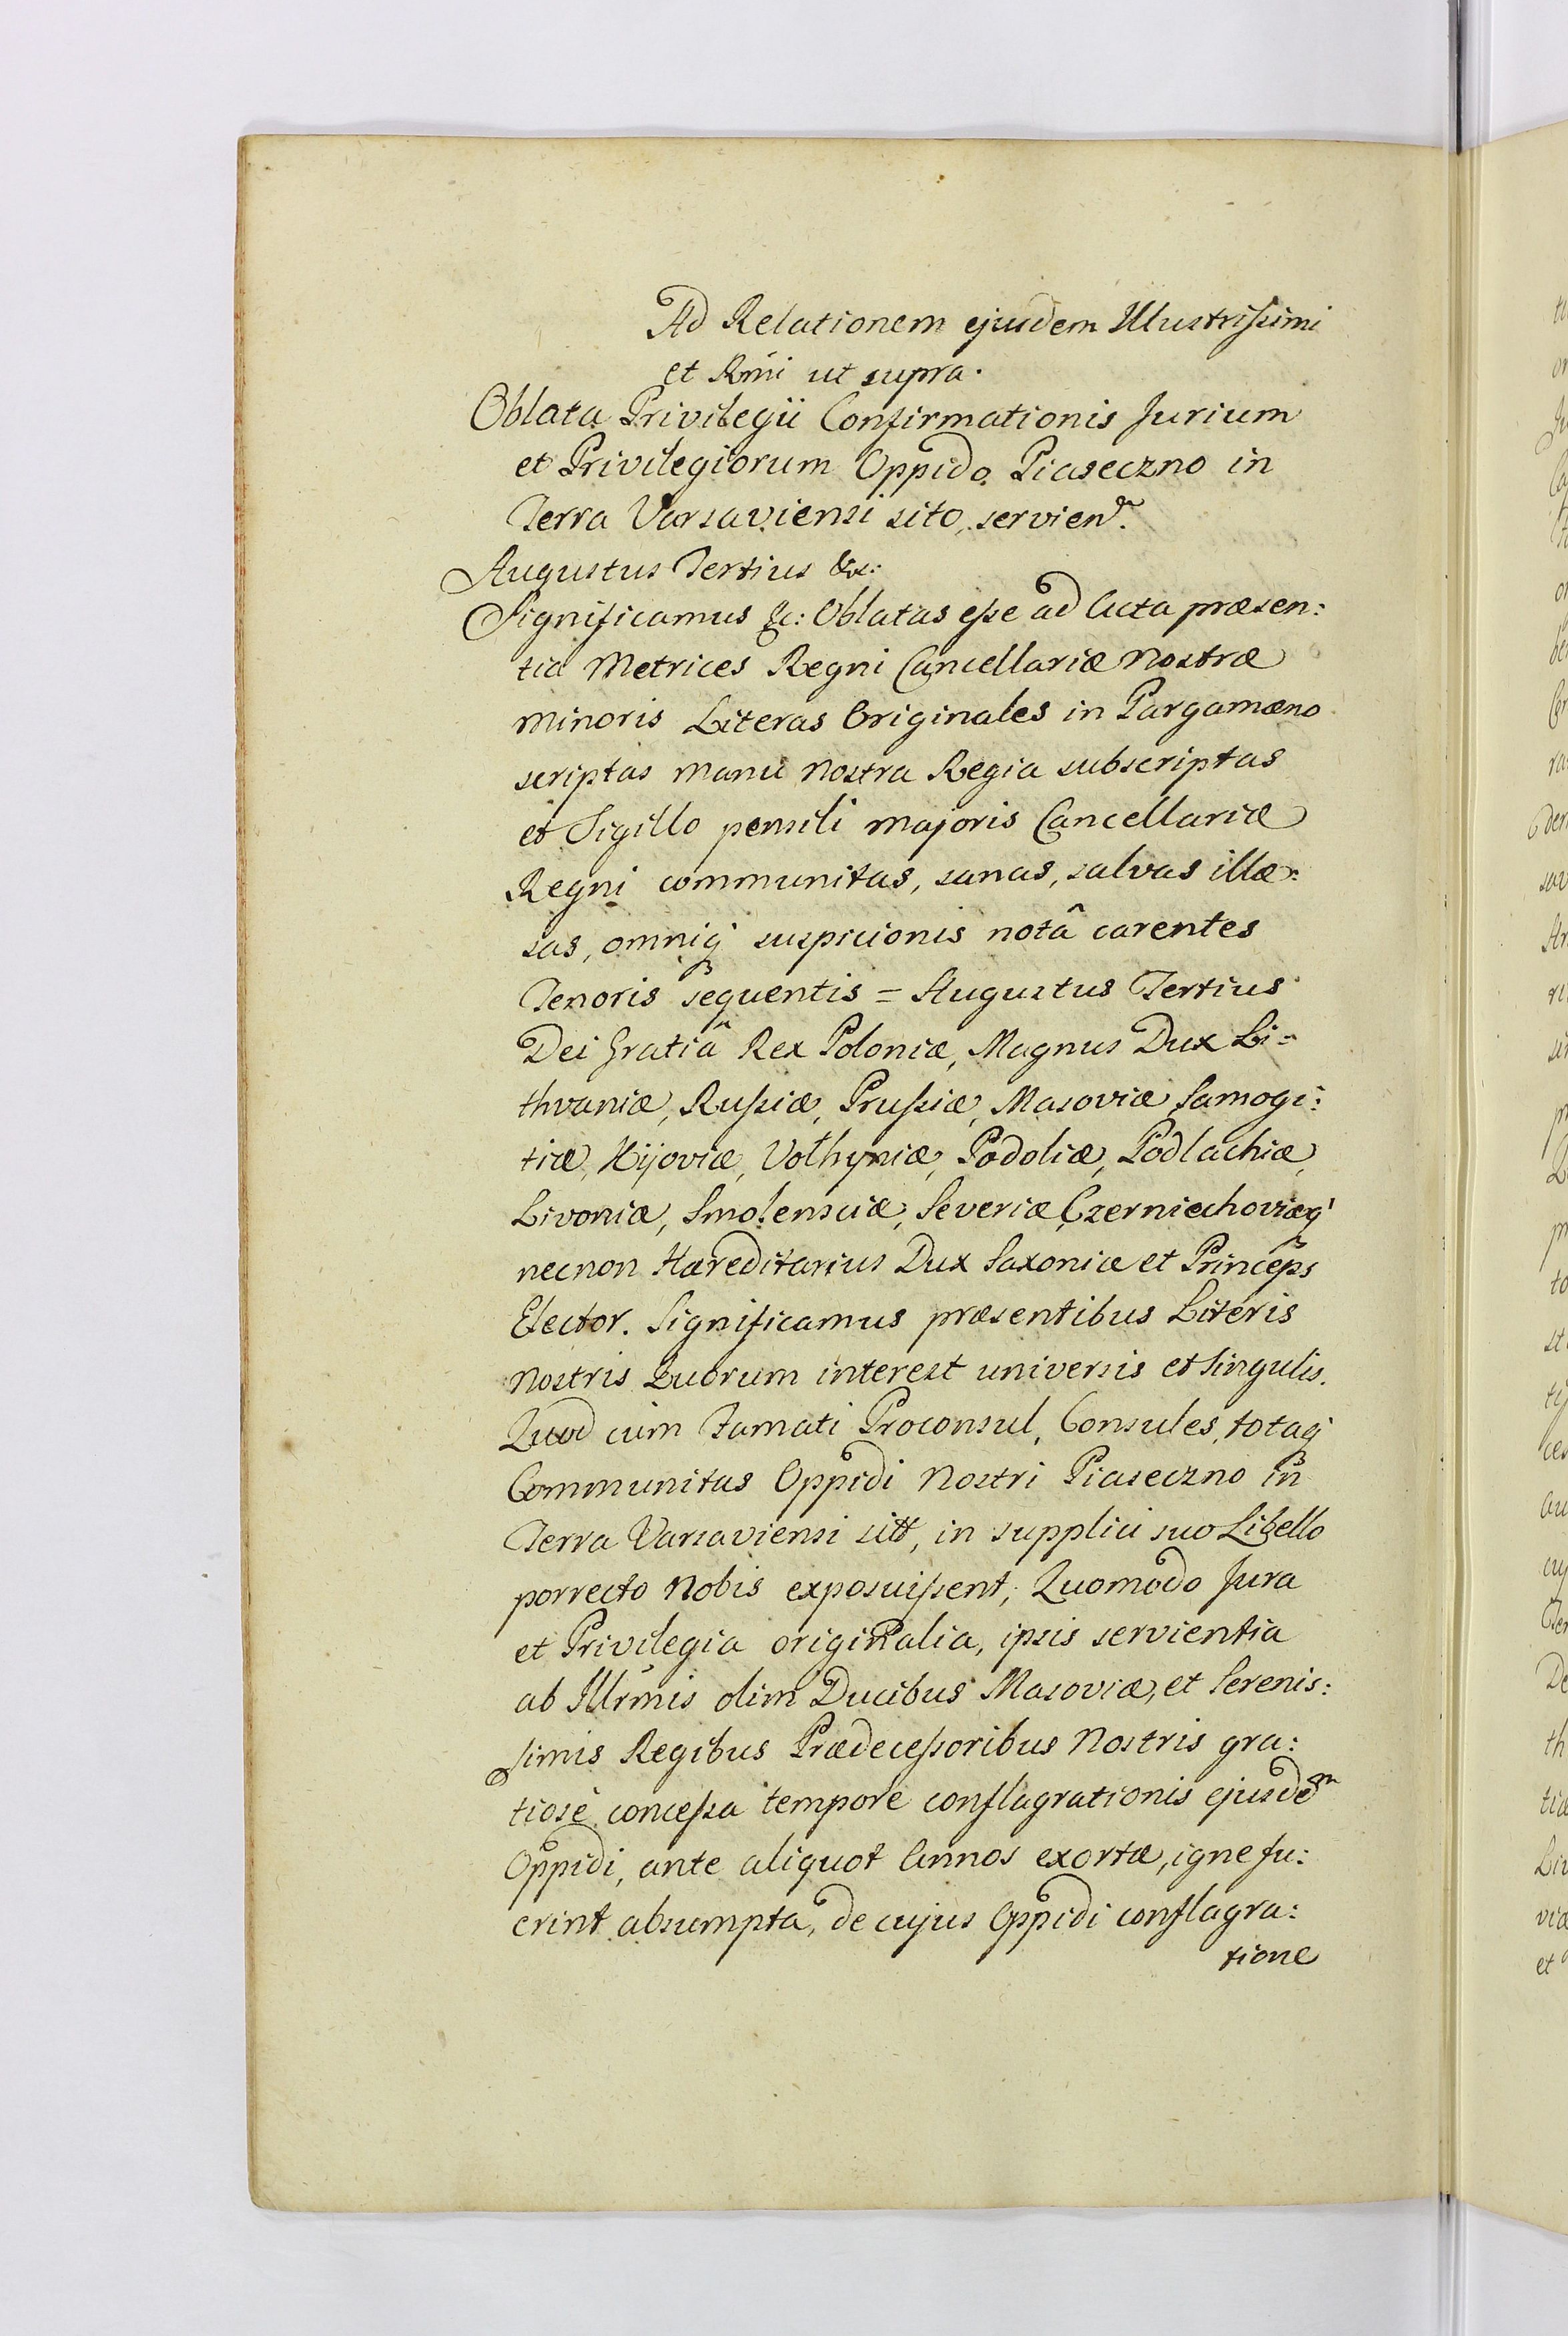 Ad Relationem ejusdem Illustrissimi
et Rmi ut supra.
Oblata Privilegii Confirmationis Jurium
et Privilegiorum Oppido Piaseczno in
Terra Varsaviensi sito, servien.
Augustus Tertius &c:
Significamus &c: Oblatas esse ad Acta præsen:
tia Metrices Regni Cancellariæ Nostræ
Minoris Literas Originales in Pargamæno
scriptas Manu Nostra Regia subscriptas
et Sigillo pensili Majoris Cancellariæ
Regni communitas, sanas, salvas illæ:
sas, omniq suspicionis notâ carentes
Tenoris sequentis = Augustus Tertius
Dei Gratiâ Rex Poloniæ, Magnus Dux Li=
thvaniæ, Russiæ, Prussiæ, Masoviæ, Samogi:
tiæ, Kijoviæ, Volhyniæ, Podoliæ, Podlachiæ,
Livoniæ, Smolensciæ, Severiæ, Czerniechoviæq
necnon Hæreditarius Dux Saxoniæ et Princeps
Elector. Significamus præsentibus Literis
Nostris Quorum interest universis et singulis.
Quod cum Famati Proconsul, Consules, totaq
Communitas Oppidi Nostri Piaseczno in
Terra Varsaviensi siti, in supplici suo Libello
porrecto Nobis exposuissent, Quomodo Jura
et Privilegia originalia, ipsis servientia
ab Illrmis olim Ducibus Masoviæ, et Serenis:
simis Regibus Prædecessoribus Nostris gra:
tiosè concessa tempore conflagrationis ejusdem
Oppidi, ante aliquot Annos exortæ, igne fu:
erint absumpta, de cujus Oppidi conflagra:
tione